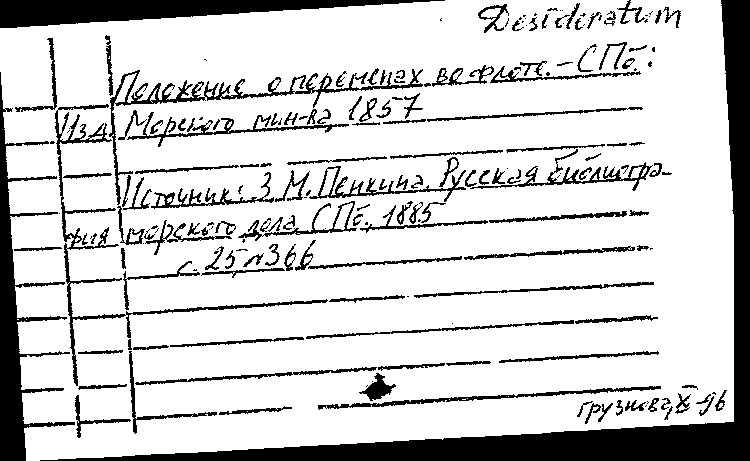 Desideratum
Положение о переменах во флоте. – СПб.:
Изд. Морского мин-ва, 1857
Источник: З.М. Пенкина. Русская библиогра-
фия морского дела. СПб., 1885
с. 25, №366
Грузнова, X-96